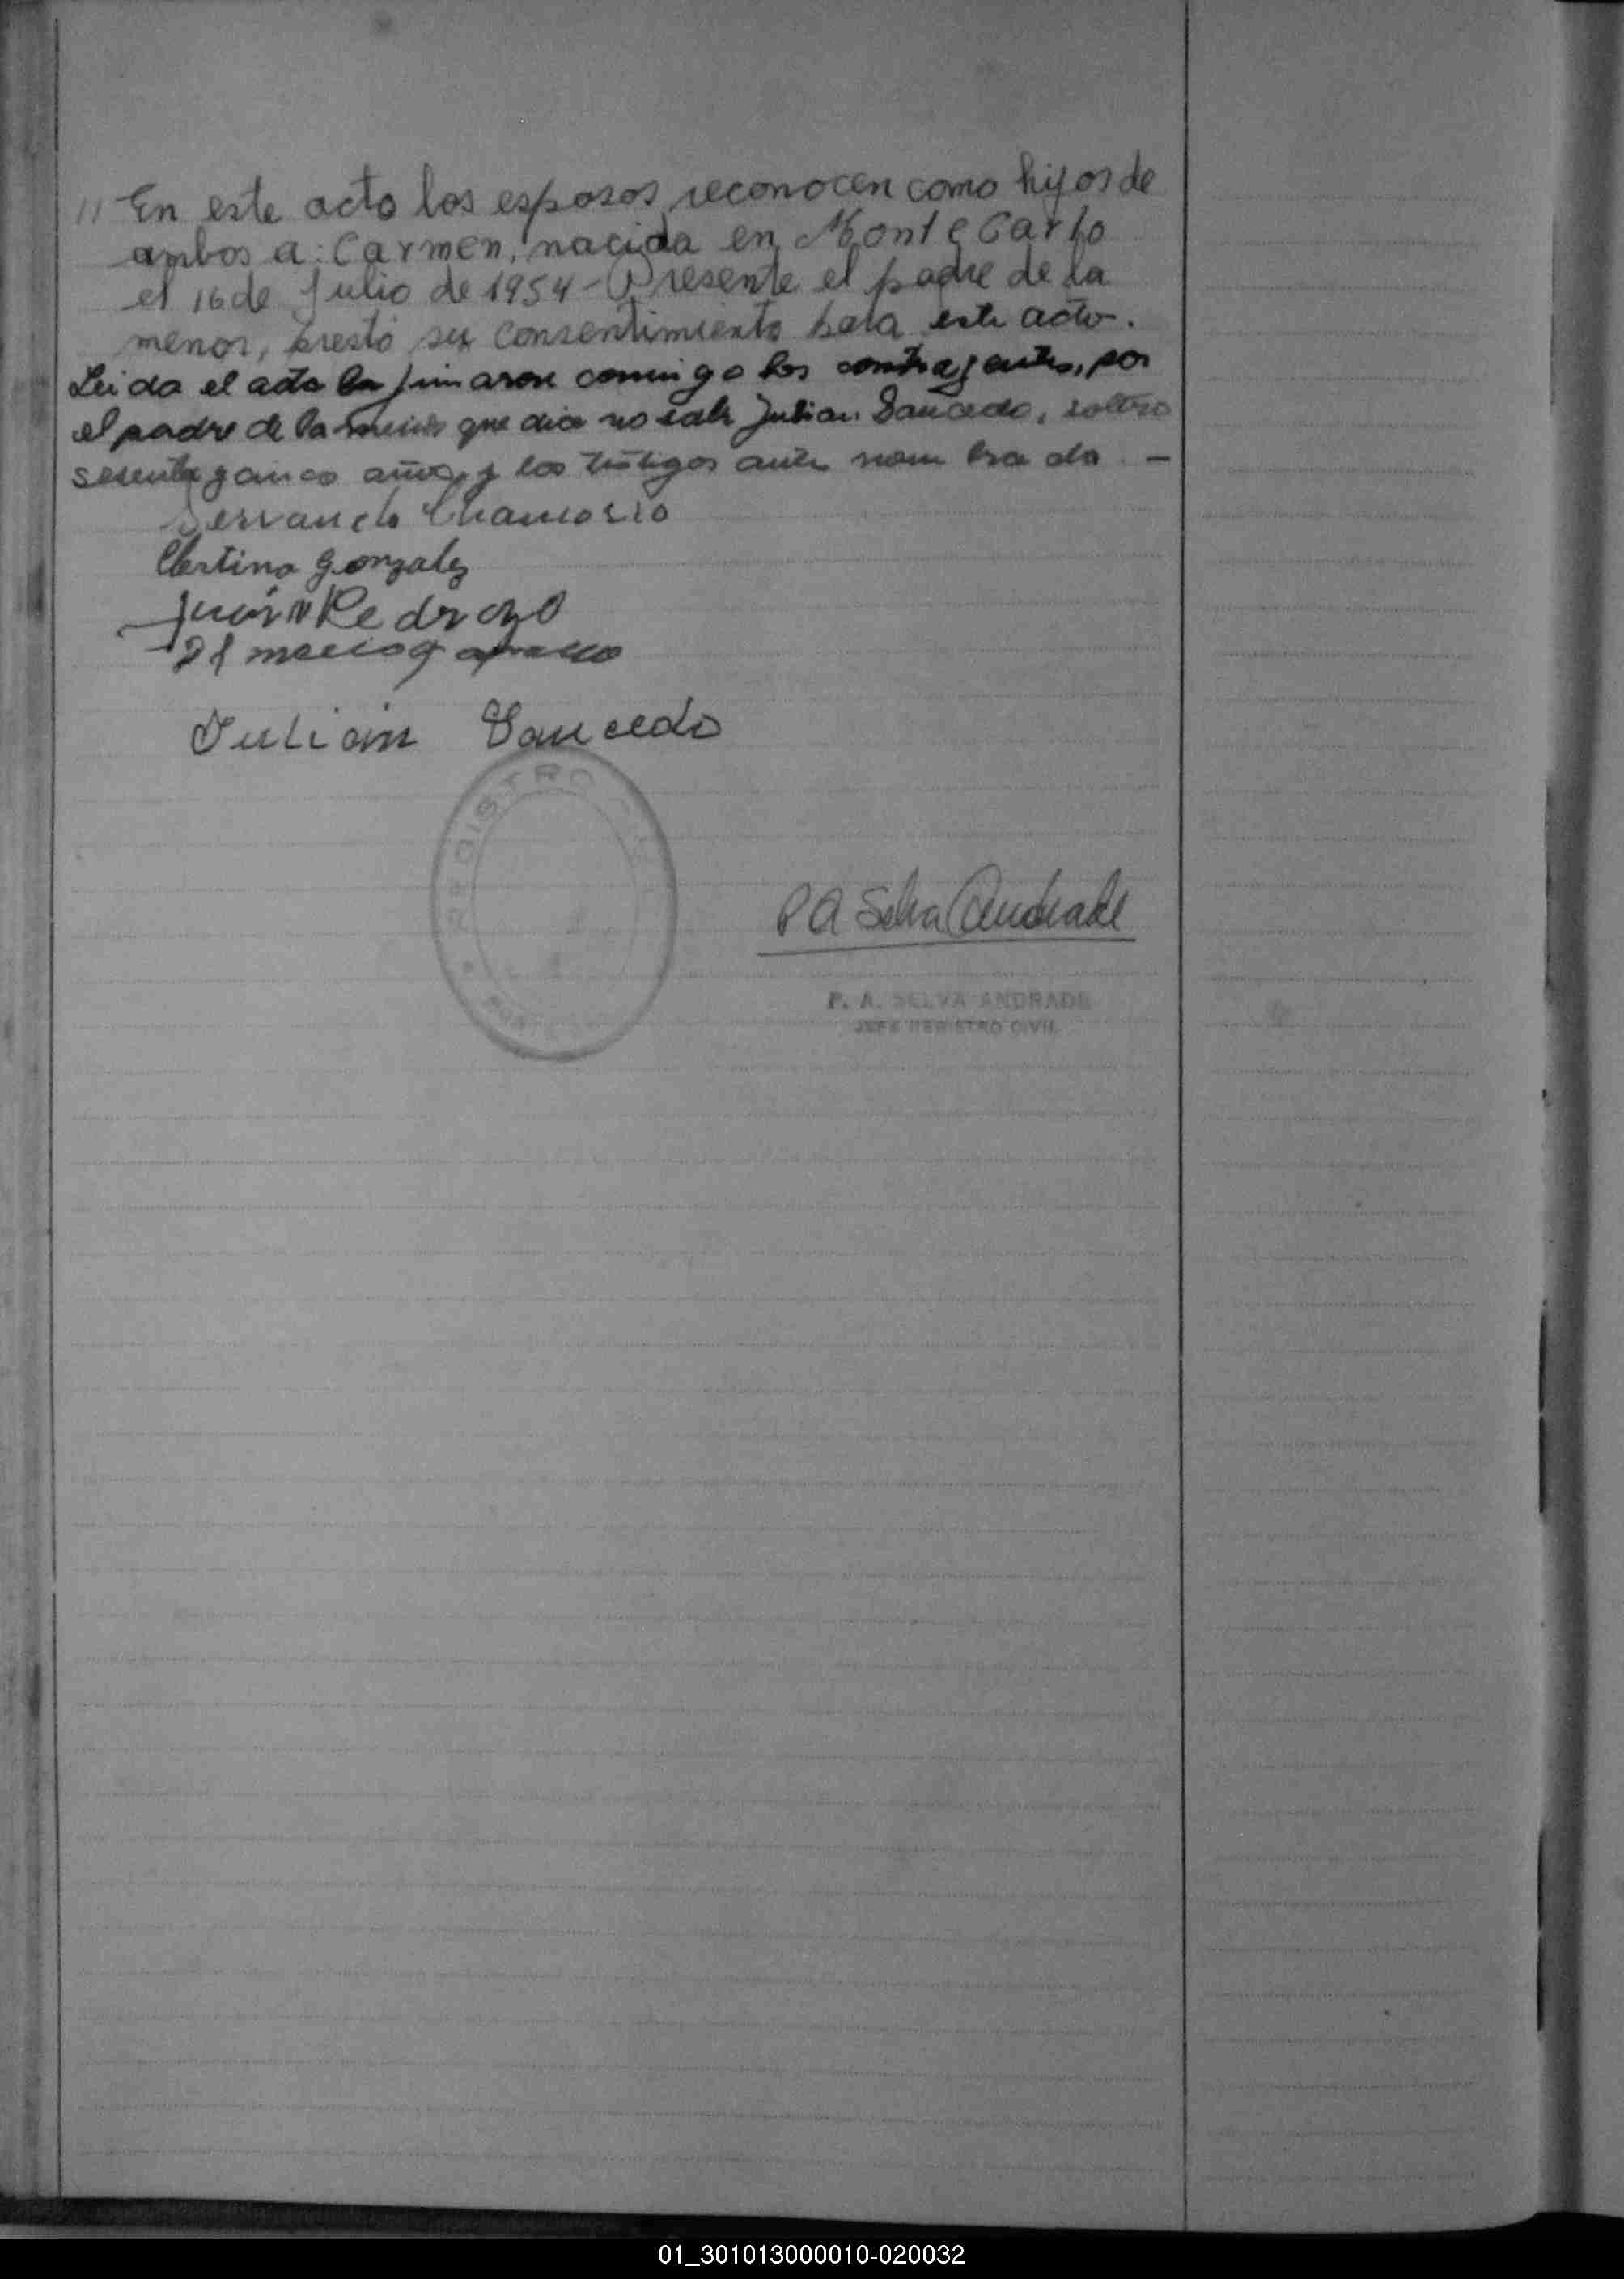 // En este acto los esposos, reconocen como hijos de
ambos a: Carmen, nacida en Monte Carlo
el 16 de Julio de 1954 - Presente el padre de la
menor, prestó su consentimiento para este acto.
Leida el acta la firmaron conmigo los contrayentes, por
el padre de la menor que dice no sabe Julian Saucedo, soltero
sesenta y cinco años, y los testigos ante nombrado. -
Servando Chamorro
Clertina Gonzalez
Juan Pedrozo
Julián Saucedo
REGISTRO
PA Selva Andrade
P. A. SELVA ANDRADE
JEFE REGISTRO CIVIL
01_301013000010-020032